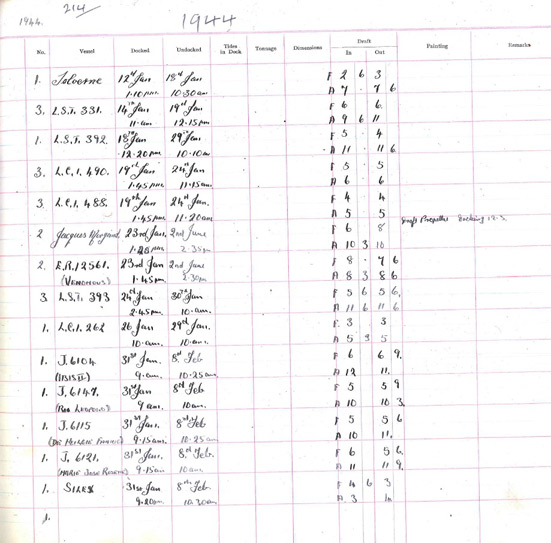 214
1944. 1944
Draft
No. Vessel Docked Undocked Tides in Dock Tonnage Dimensions In Out Painting Remarks
1. 12th Jan 18th Jan F 2 6 3
1.10 p.m. 10.30 am A 7 7 6
3. L.S.T. 331. 14th Jan 19th Jan F 6 6.
11. a.m 12.15 p.m A 9 6 11
1. L.S.T. 392. 18th Jan 29th Jan F 5 4
12.20 p.m 10.10 a A 11 11 6
3. L.C.I. 490. 19th Jan 24th Jan F 5 5
1.45 p.m 11.15 am A 6 6
3. L.C.I. 488. 19th Jan 24th Jan. F 4 4
1.45 p.m 11.20 am A 5 5
2 Jacques 23rd Jan. 2nd June F 6 8
1.25 p.m 2.35 pm A 10 3 10
2. 23rd Jan 2nd June F 8 7 6
(VENOMOUS) 1.45 p.m 2.30 pm A 8 3 8 6
3. L.S.T. 393 24th Jan 30th Jan F 5 6 5 6.
2.45 p.m 10. a.m. A 11 6 11 6
1. L.C.I. 262 26 Jan 29th Jan. F 3 3
10. a.m. 10. a.m. A 5 3 5
1. J. 6104 31st Jan. 8th Feb F 6 6 9.
9. a.m. 10.25 am A 12 11.
1. J. 6147. 31st Jan 8th Feb F 5 5 9
9 am. 10am. A 10 10 3.
1. J. 6115 31st Jan. 8th Feb. F 5 5 6
9.15 am. 10.25 am A 10 11.
1. J. 6121. 31st Jan 8th Feb F 6 5 6.
9.15am 10am. A 11 11 9.
1. 31st Jan 8th Feb. F 4 6 3
9.20am. 10.30am A 3
1.